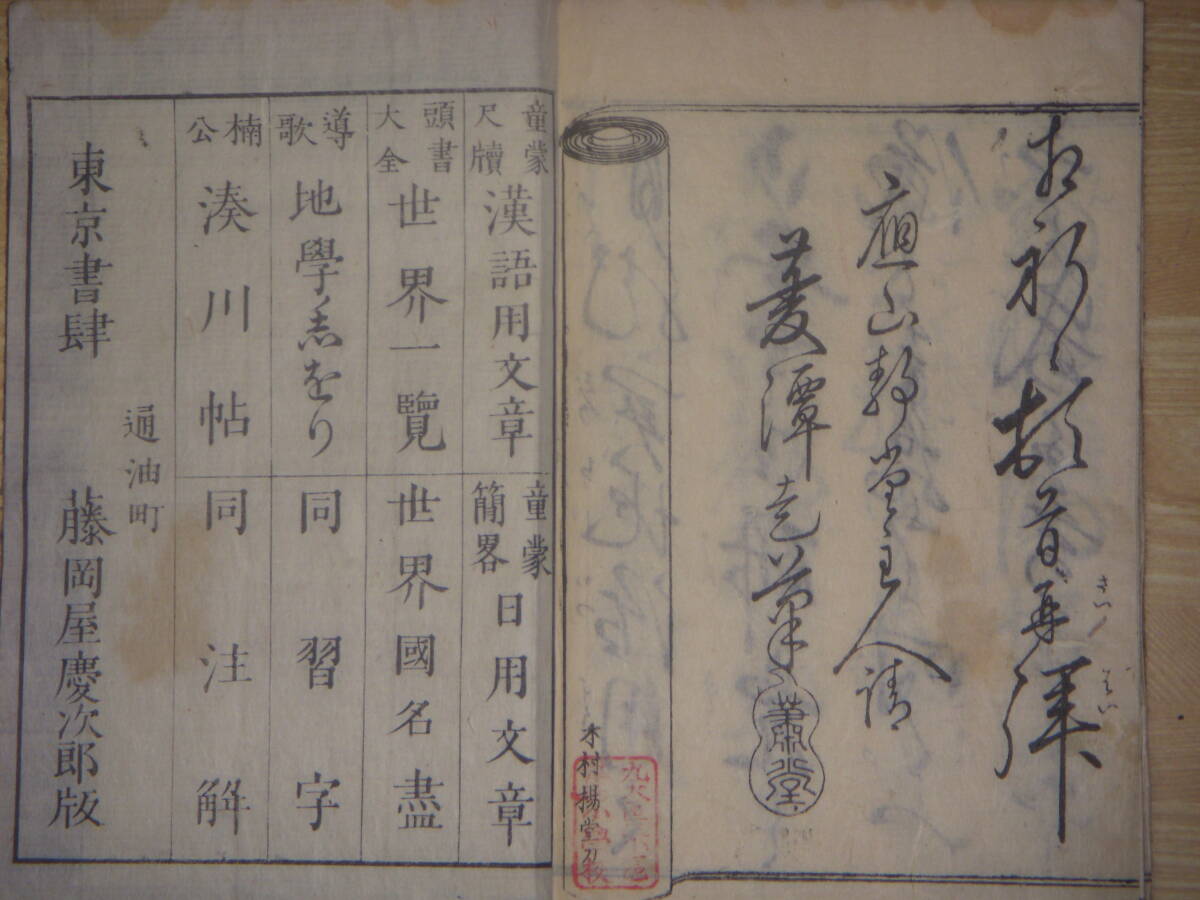 頓首再拝
さい
はい
應山静堂主人請
菱潭走筆
蕭堂
木村揚堂刀
童蒙尺牘 漢語用文章
童蒙簡畧 日用文章
頭書大全 世界一覽
世界國名盡
導歌 地學志をり
同習字
楠公 湊川帖
同注解
通油町
東京書肆 藤岡屋慶次郎版